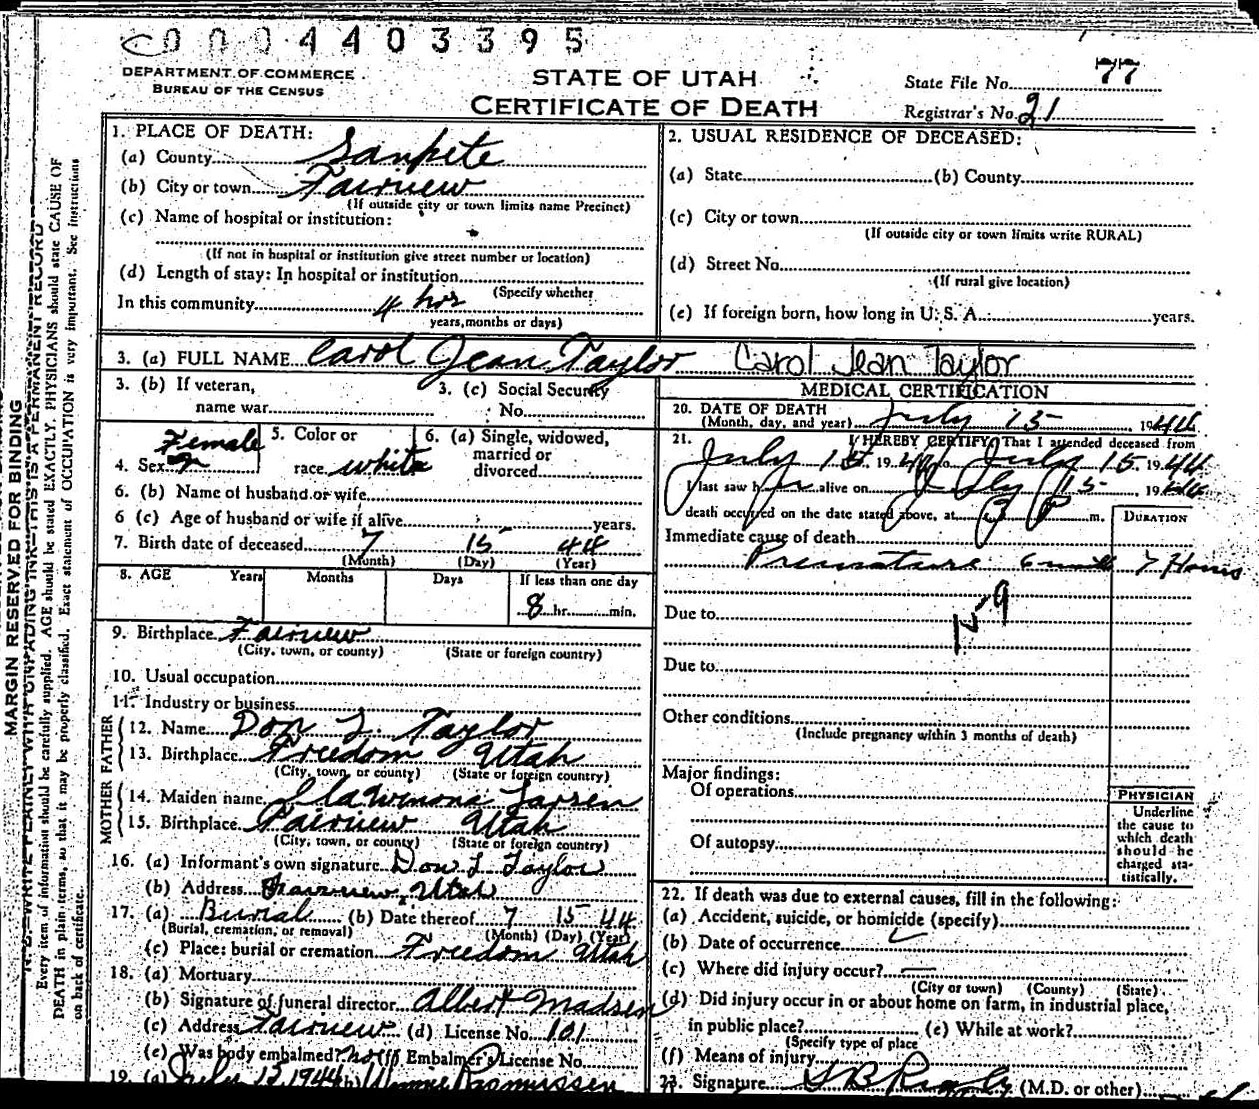 0004403395
DEPARTMENT OF COMMERCE
BUREAU OF THE CENSUS
STATE OF UTAH
CERTIFICATE OF DEATH
State File No. 77
Registrar's No. 21
MARGIN RESERVED FOR BINDING
N. B.—WRITE PLAINLY WITH UNFADING INK—THIS IS A PERMANENT RECORD
Every item of information should be carefully supplied. AGE should be stated EXACTLY. PHYSICIANS should state CAUSE OF
DEATH in plain terms, so that it may be properly classified. Exact statement of OCCUPATION is very important. See instructions
on back of certificate.
1. PLACE OF DEATH:
(a) County Sanpete
(b) City or town Fairview
(If outside city or town limits name Precinct)
(c) Name of hospital or institution:
(If not in hospital or institution give street number or location)
(d) Length of stay: In hospital or institution
(Specify whether
In this community 4 hrs
years, months or days)
2. USUAL RESIDENCE OF DECEASED:
(a) State (b) County
(c) City or town
(If outside city or town limits write RURAL)
(d) Street No.
(If rural give location)
(e) If foreign born, how long in U. S. A.: years.
3. (a) FULL NAME Carol Jean Taylor Carol Jean Taylor
3. (b) If veteran, name war
3. (c) Social Security No.
4. Sex Female
5. Color or race white
6. (a) Single, widowed, married or divorced
6. (b) Name of husband or wife
6 (c) Age of husband or wife if alive years.
7. Birth date of deceased 7 15 44
(Month) (Day) (Year)
8. AGE Years Months Days If less than one day
8 hr. min.
9. Birthplace Fairview
(City, town, or county) (State or foreign country)
10. Usual occupation
11. Industry or business
FATHER
12. Name Don L. Taylor
13. Birthplace Freedom Utah
(City, town, or county) (State or foreign country)
MOTHER
14. Maiden name Larsen
15. Birthplace Fairview Utah
(City, town, or county) (State or foreign country)
16. (a) Informant's own signature Don L Taylor
(b) Address Fairview, Utah
17. (a) Burial (b) Date thereof 7 15 44
(Burial, cremation, or removal) (Month) (Day) (Year)
(c) Place: burial or cremation Freedom Utah
18. (a) Mortuary
(b) Signature of funeral director Albert Madsen
(c) Address Fairview (d) License No. 101
(e) Was body embalmed? no (f) Embalmer's License No.
19. (a) July 15 1944 (b) Rasmussen
MEDICAL CERTIFICATION
20. DATE OF DEATH
(Month, day, and year) July 15 1944
21. I HEREBY CERTIFY, That I attended deceased from
July 15, 1944 to July 15, 1944
I last saw her alive on July 15, 1944
death occurred on the date stated above, at 3 P m.
DURATION
Immediate cause of death
Premature 6 7 Hours
Due to
Due to
Other conditions
(Include pregnancy within 3 months of death)
Major findings:
Of operations
Of autopsy
PHYSICIAN
Underline
the cause to
which death
should be
charged sta-
tistically.
22. If death was due to external causes, fill in the following:
(a) Accident, suicide, or homicide (specify)
(b) Date of occurrence
(c) Where did injury occur?
(City or town) (County) (State)
(d) Did injury occur in or about home on farm, in industrial place,
in public place? (e) While at work?
(Specify type of place
(f) Means of injury
23. Signature (M.D. or other)